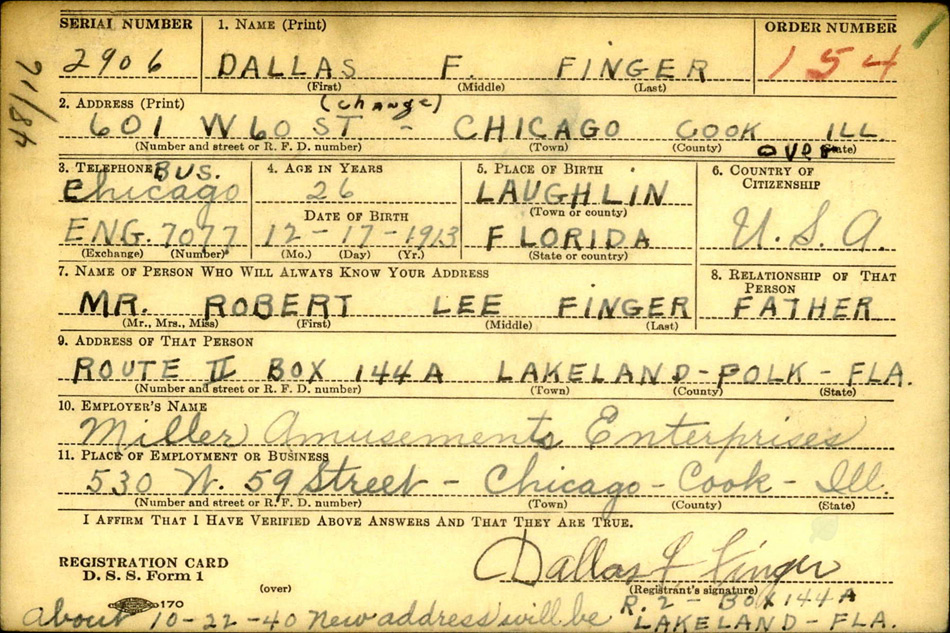 SERIAL NUMBER 1. NAME (Print) ORDER NUMBER
2906 DALLAS F. FINGER 154
(First) (Middle) (Last)
2. ADDRESS (Print) (change)
601 W 60 ST - CHICAGO COOK ILL
(Number and street or R. F. D. number) (Town) (County) (State)
over
3. TELEPHONE BUS. 4. AGE IN YEARS 5. PLACE OF BIRTH 6. COUNTRY OF CITIZENSHIP
Chicago 26 LAUGHLIN
DATE OF BIRTH (Town or county)
ENG. 7077 12-17-1913 FLORIDA U. S. A.
(Exchange) (Number) (Mo.) (Day) (Yr.) (State or country)
7. NAME OF PERSON WHO WILL ALWAYS KNOW YOUR ADDRESS 8. RELATIONSHIP OF THAT PERSON
MR. ROBERT LEE FINGER FATHER
(Mr., Mrs., Miss) (First) (Middle) (Last)
9. ADDRESS OF THAT PERSON
ROUTE II BOX 144A LAKELAND-POLK-FLA.
(Number and street or R. F. D. number) (Town) (County) (State)
10. EMPLOYER'S NAME
Miller Amusements Enterprises
11. PLACE OF EMPLOYMENT OR BUSINESS
530 W. 59 Street - Chicago - Cook - Ill.
(Number and street or R. F. D. number) (Town) (County) (State)
I AFFIRM THAT I HAVE VERIFIED ABOVE ANSWERS AND THAT THEY ARE TRUE.
REGISTRATION CARD
D. S. S. Form 1 (over) Dallas F Finger
(Registrant's signature)
170 R. 2 - BOX 144A
About 10-22-40 New address will be LAKELAND - FLA.